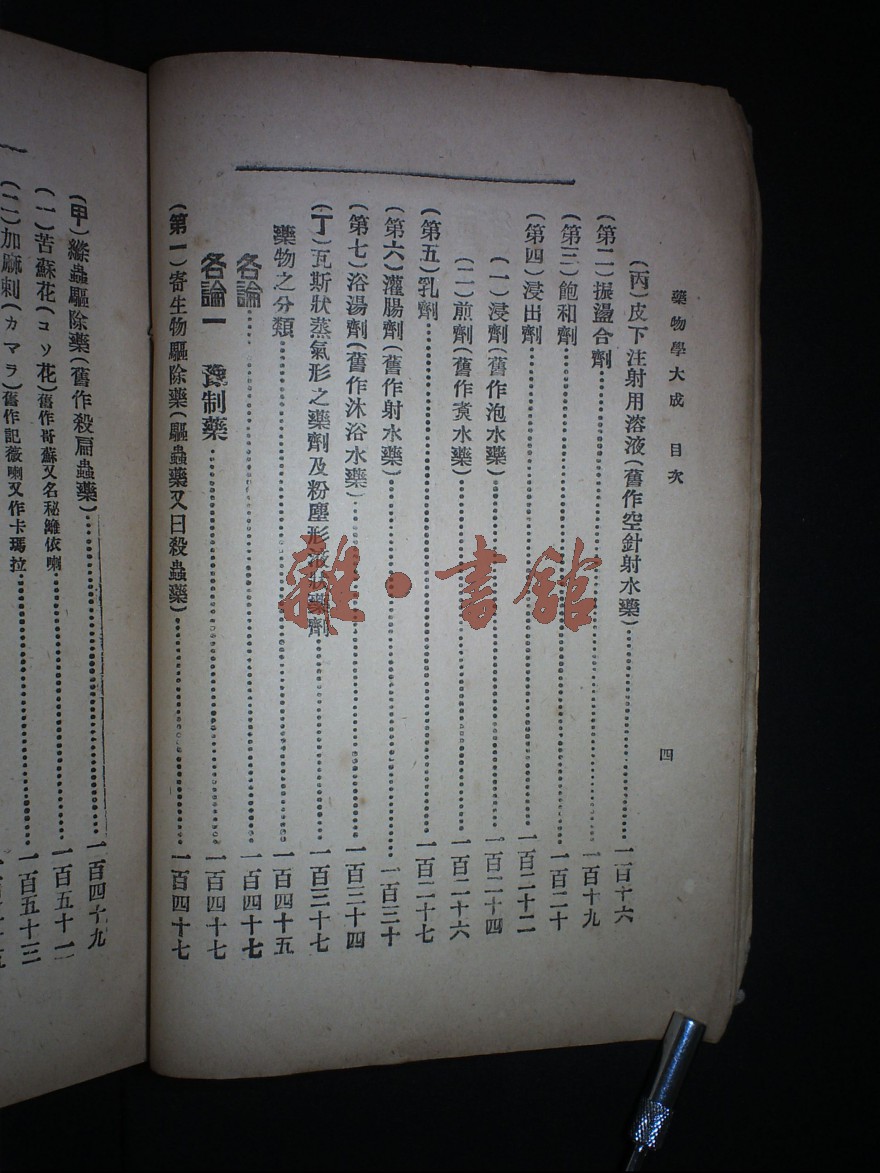 藥物學大成　目次
四
(丙)皮下注射用溶液(舊作空針射水藥)……一百十六
(第二)振盪合劑……一百十九
(第三)飽和劑……一百二十
(第四)浸出劑……一百二十二
(一)浸劑(舊作泡水藥)……一百二十四
(二)煎劑(舊作煑水藥)……一百二十六
(第五)乳劑……一百二十七
(第六)灌腸劑(舊作射水藥)……一百三十
(第七)浴湯劑(舊作沐浴水藥)……一百三十四
(丁)瓦斯狀蒸氣形之藥劑及粉塵形液狀藥劑……一百三十七
藥物之分類……一百四十五
各論……一百四十七
各論一　豫制藥……一百四十七
(第一)寄生物驅除藥(驅蟲藥又曰殺蟲藥)……一百四十七
(甲)絛蟲驅除藥(舊作殺扁蟲藥)……一百四十九
(一)苦蘇花(コソ花)舊作哥蘇又名秘維依喇……一百五十二
(二)加麻刺(カマラ)舊作記薇喇又作卡瑪拉……一百五十三
雜·書館